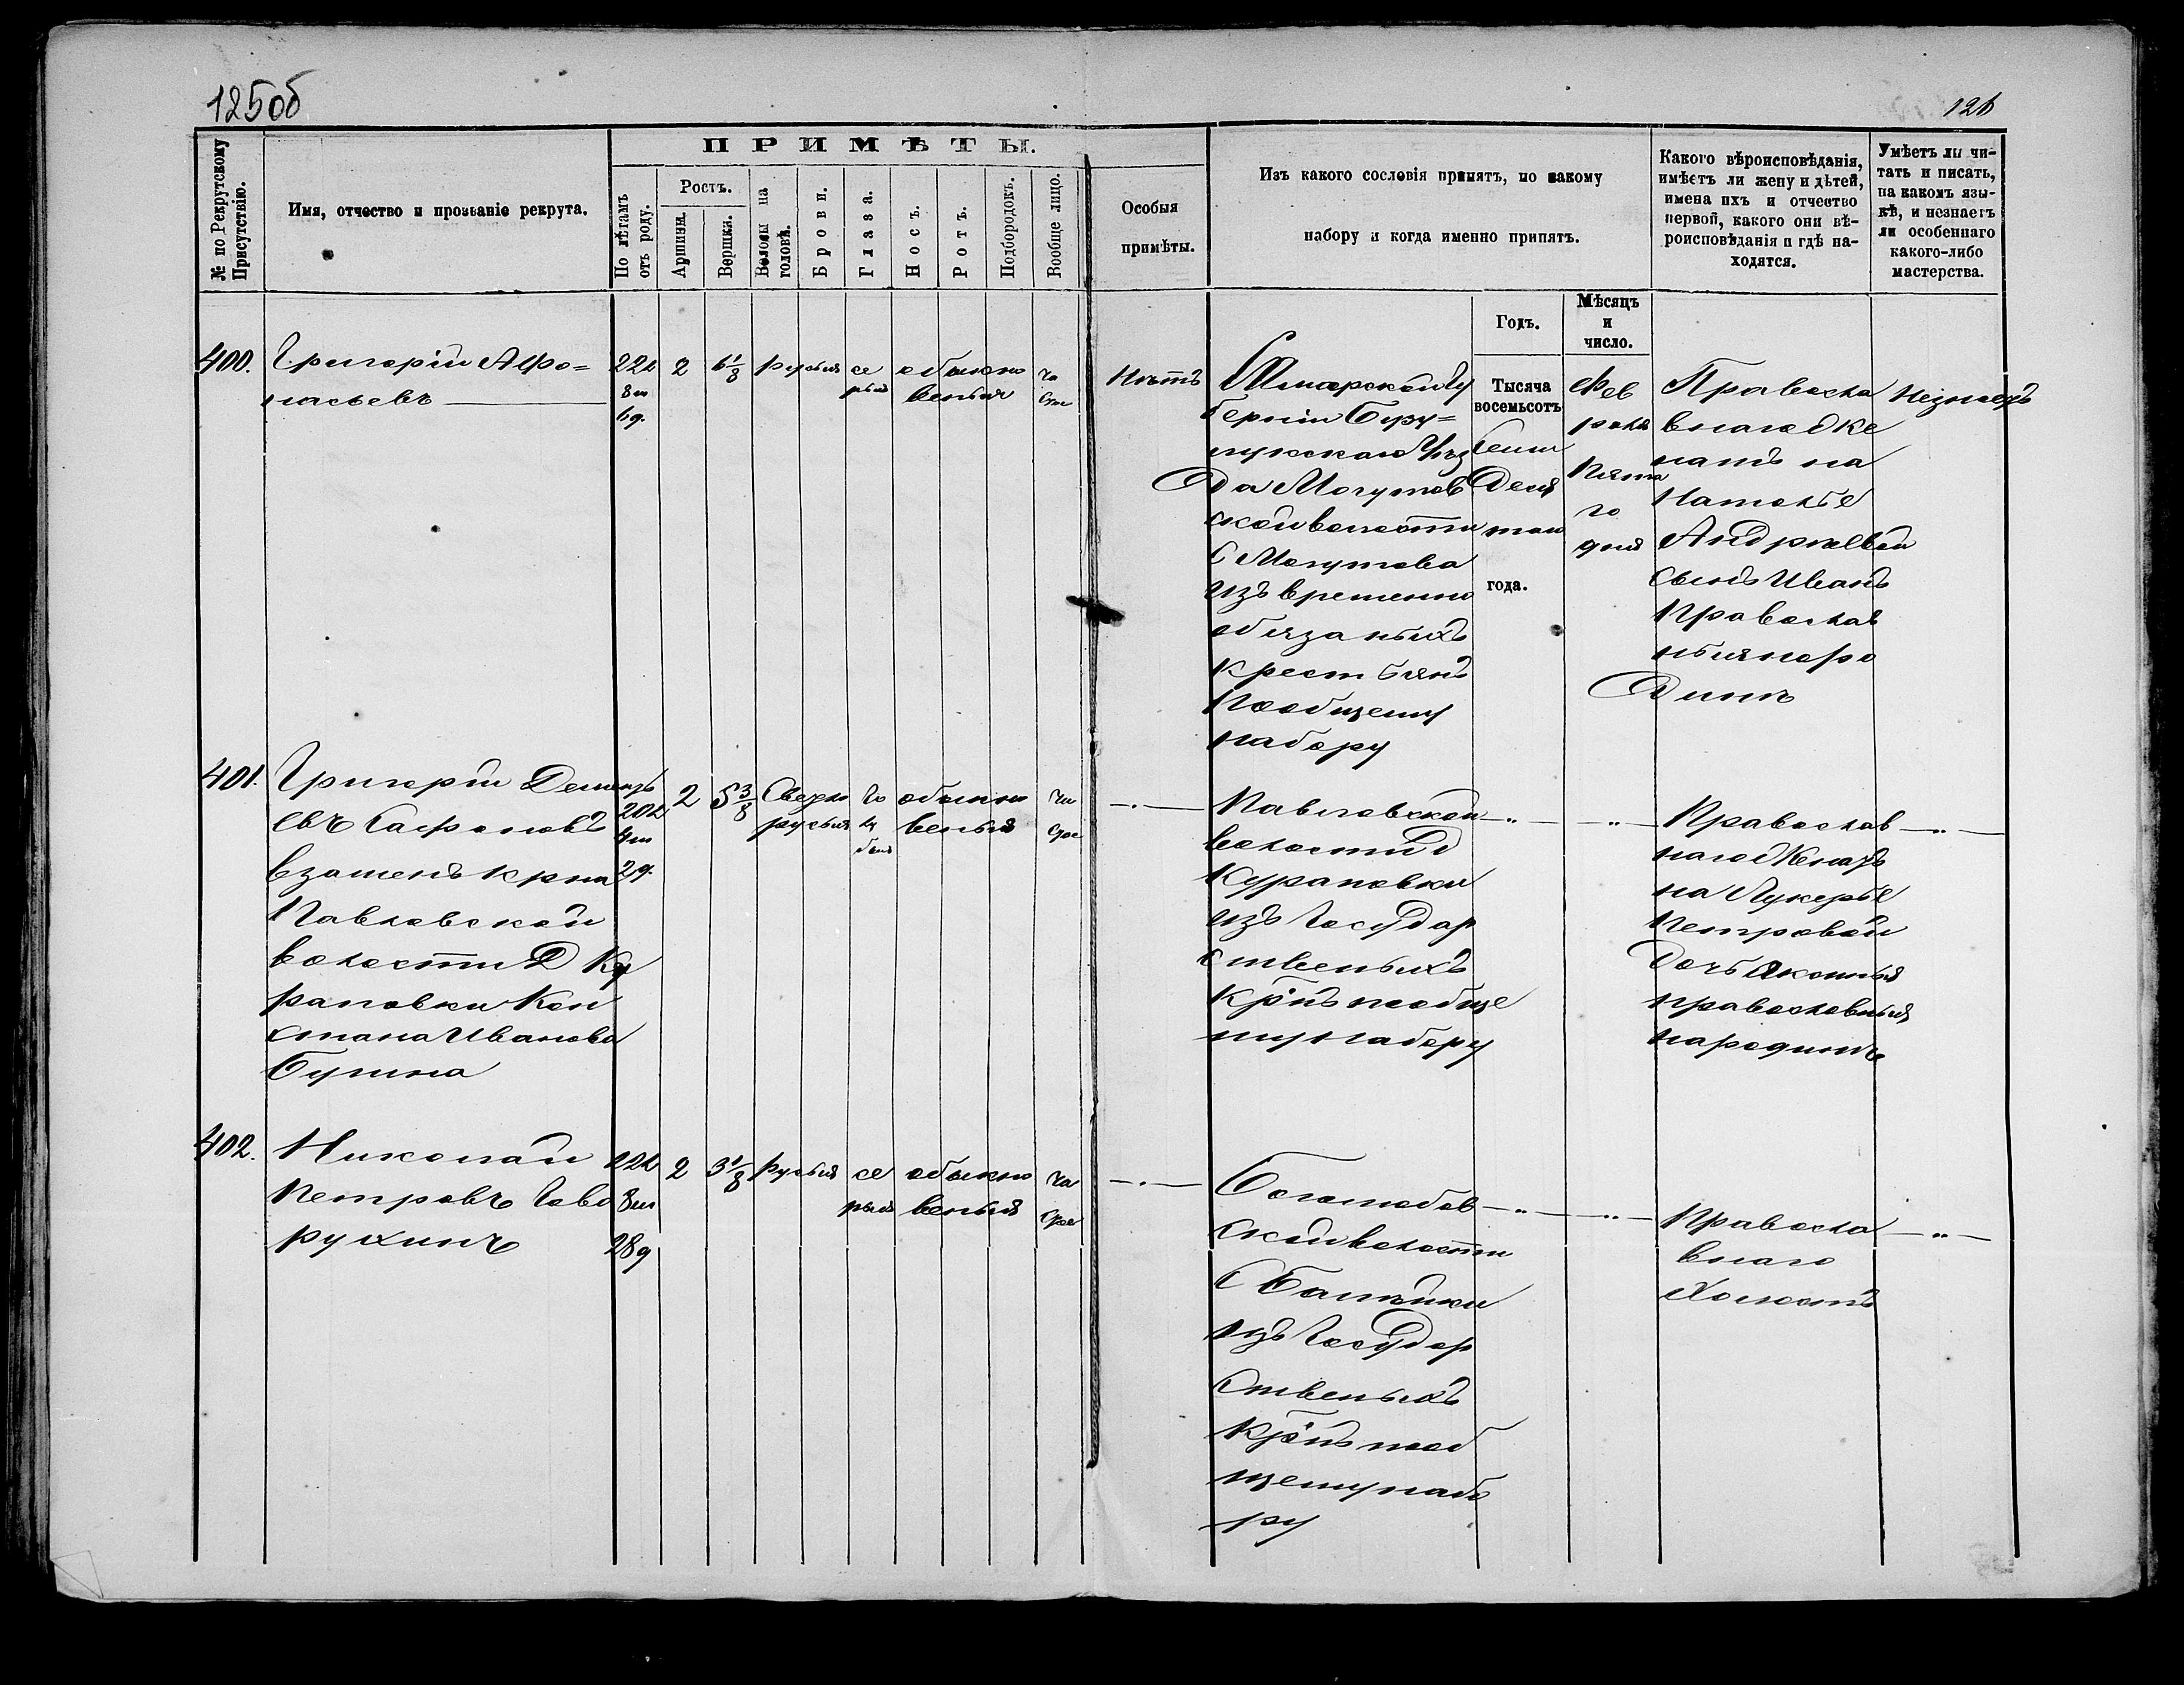 125об
126
№ по Рекрутскому Присутствію.
Имя, отчество и прозваніе рекрута.
ПРИМѢТЫ.
По лѣтамъ отъ роду.
Ростъ.
Аршины.
Вершки.
Волосы на головѣ.
Брови.
Глаза.
Носъ.
Ротъ.
Подбородокъ.
Вообще лицо.
Особыя
примѣты.
Изъ какого сословія принятъ, по какому
набору и когда именно принятъ.
Годъ.
Мѣсяцъ
и
число.
Какого вѣроисповѣданія,
имѣетъ ли жену и дѣтей,
имена ихъ и отчество
первой, какого они вѣ-
роисповѣданія и гдѣ на-
ходятся.
Умѣетъ ли чи-
тать и писать,
на какомъ язы-
кѣ, и незнаетъ
ли особеннаго
какого-либо
мастерства.
400.
Григорій Афо=
насьевъ
22л
8м
6д.
2
6 1/8
русыя
се
рыя
обыкно
веныя
чи
стое
Нѣтъ
Самарской гу
берніи Бузу=
лукскаго Уѣз
да Могутов
ской волости
С Могутова
изъ временно
обязаныхъ
крестьянъ
по общему
набору
Тысяча
восемьсотъ
семи
деся
таго
года.
Фев
раля
Пята
го
дня
Правосла
внаго Же
натъ на
Наталье
Андреевой
сынъ Иванъ
православ
ныя на ро
динѣ
Незнаетъ
401.
Григорій Дементь
евъ Сафоновъ
взаменъ кр-на
Павловской
волости Д Ку
раповки Кон
стана Иванова
Бунина
20л
4м
2д.
2
5 3/8
Светло
русыя
го
лу
быя
обыкно
веныя
чи
стое
Павловской
волости Д
Кураповки
изъ Государ
ственыхъ
кр-нъ по обще
му набору
Православ
наго Женатъ
на Лукерье
Петровой
дочь Акулина
православныя
на родинѣ
402.
Николай
Петровъ Гово
рухинъ
22л
8м
28д
2
3 1/8
Русыя
се
рыя
обыкно
веныя
чи
стое
Боголюбов
ской волости
С Баландки
изъ Государ
ственыхъ
кр-нъ по об
щему набо
ру
Правосла
внаго
Холостъ